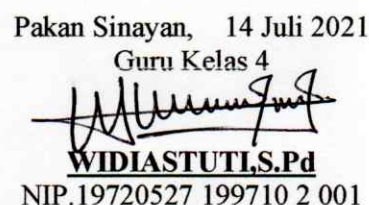 Pakan Sinayan, 14 Juli 2021
Guru Kelas 4
WIDIASTUTI,S.Pd
NIP.19720527 199710 2 001